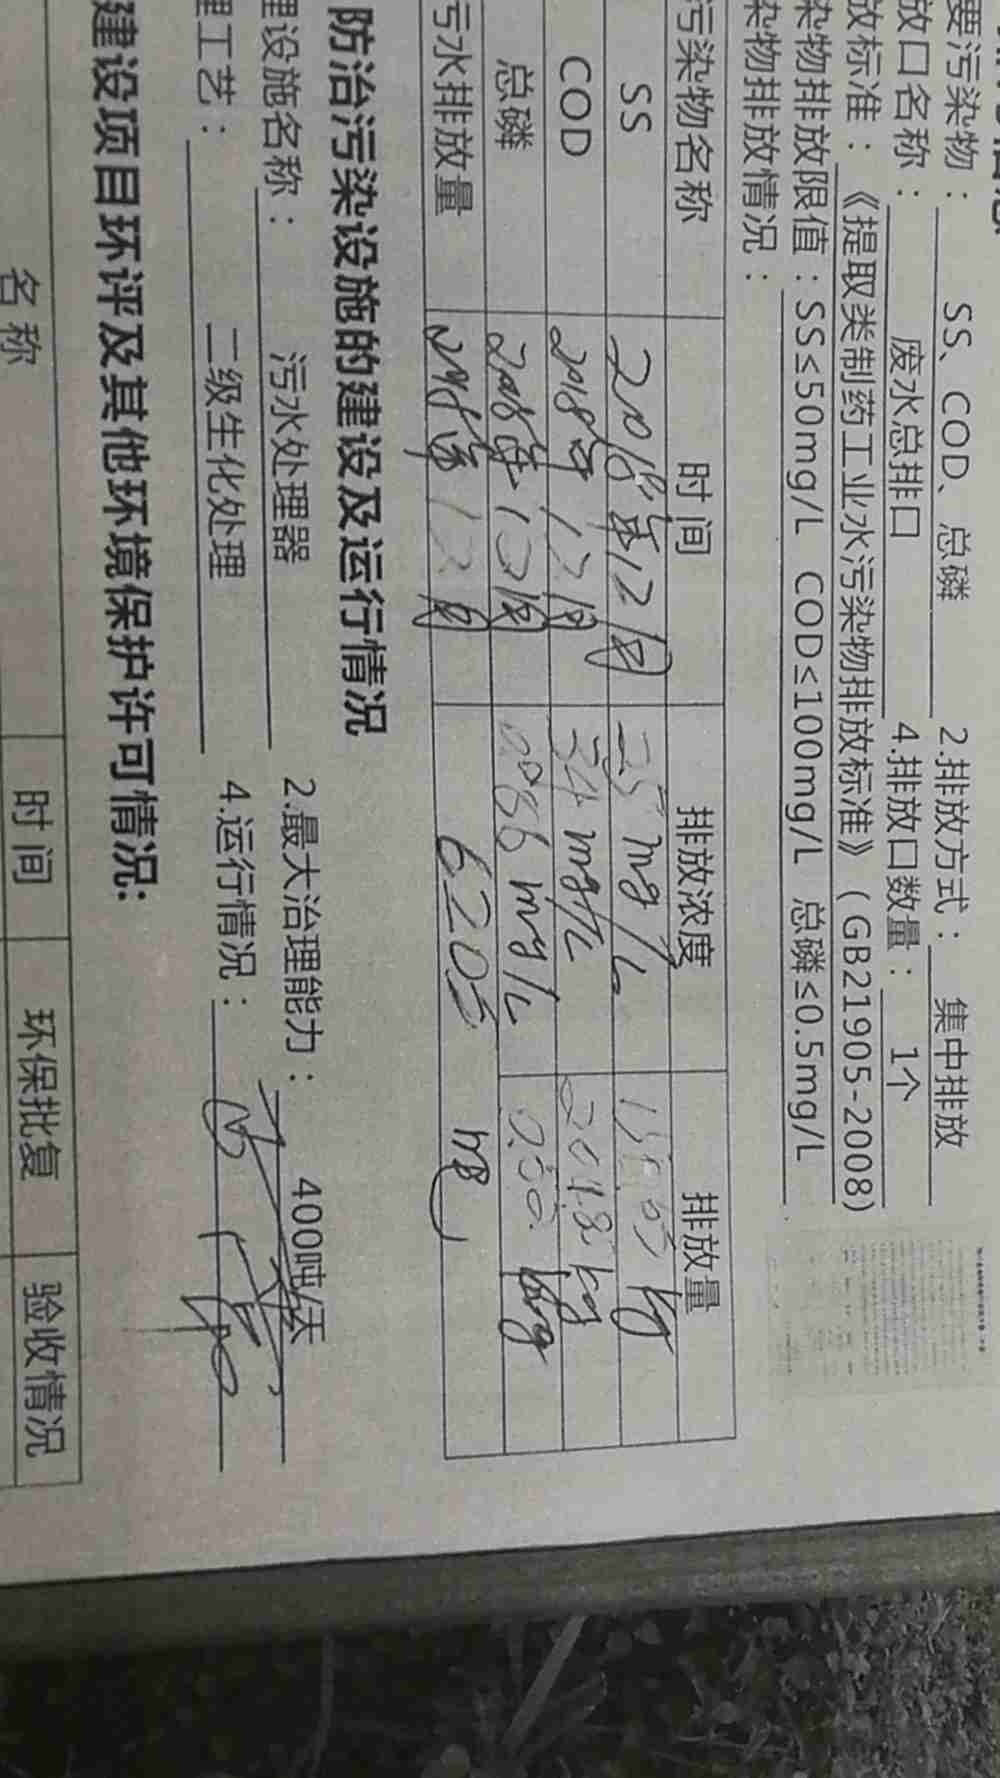 要污染物：SS、COD、总磷 2.排放方式：集中排放
放口名称：废水总排口 4.排放口数量：1个
放标准：《提取类制药工业水污染物排放标准》（GB21905-2008)
染物排放限值：SS≤50mg/L COD≤100mg/L 总磷≤0.5mg/L
染物排放情况：
污染物名称 时间 排放浓度 排放量
SS 2018年12月 25mg/L kg
COD 2018年12月 34mg/L kg
总磷 2018年12月 0.086mg/L kg
污水排放量 2018年12月 6205吨
防治污染设施的建设及运行情况
理设施名称：污水处理器 2.最大治理能力：400吨/天
理工艺：二级生化处理 4.运行情况：
建设项目环评及其他环境保护许可情况：
名称 时间 环保批复 验收情况